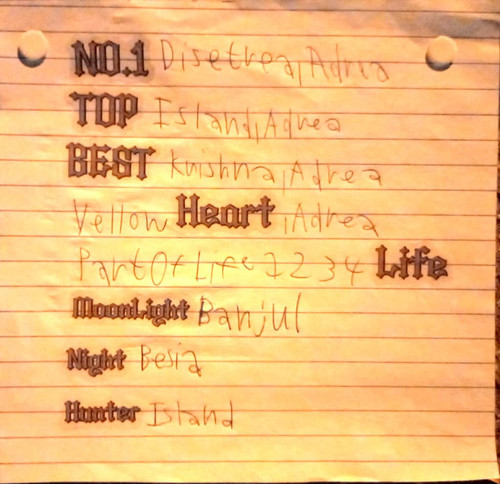 NO.1 Disetrea, Adrea
TOP Island, Adrea
BEST Krishna, Adrea
Yellow Heart, Adrea
Part Of Life 1 2 3 4 Life
MoonLight Banjul
Night Besia
Hunter Island